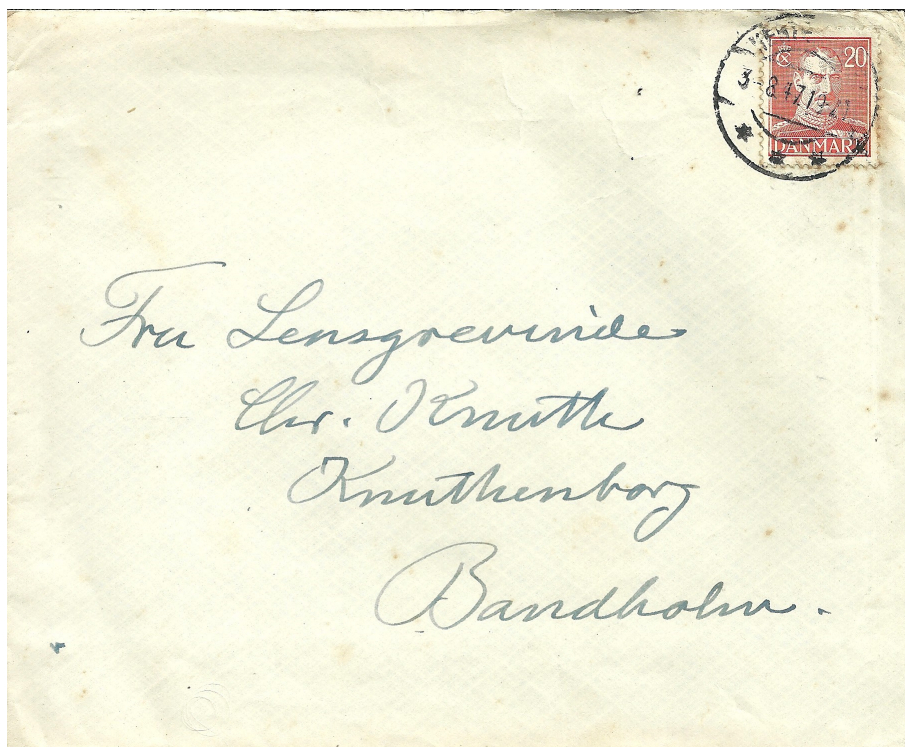 20
3-8.47.19
DANMARK
Fru Lensgrevinde
Chr. Knuth
Knuthenborg
Bandholm.